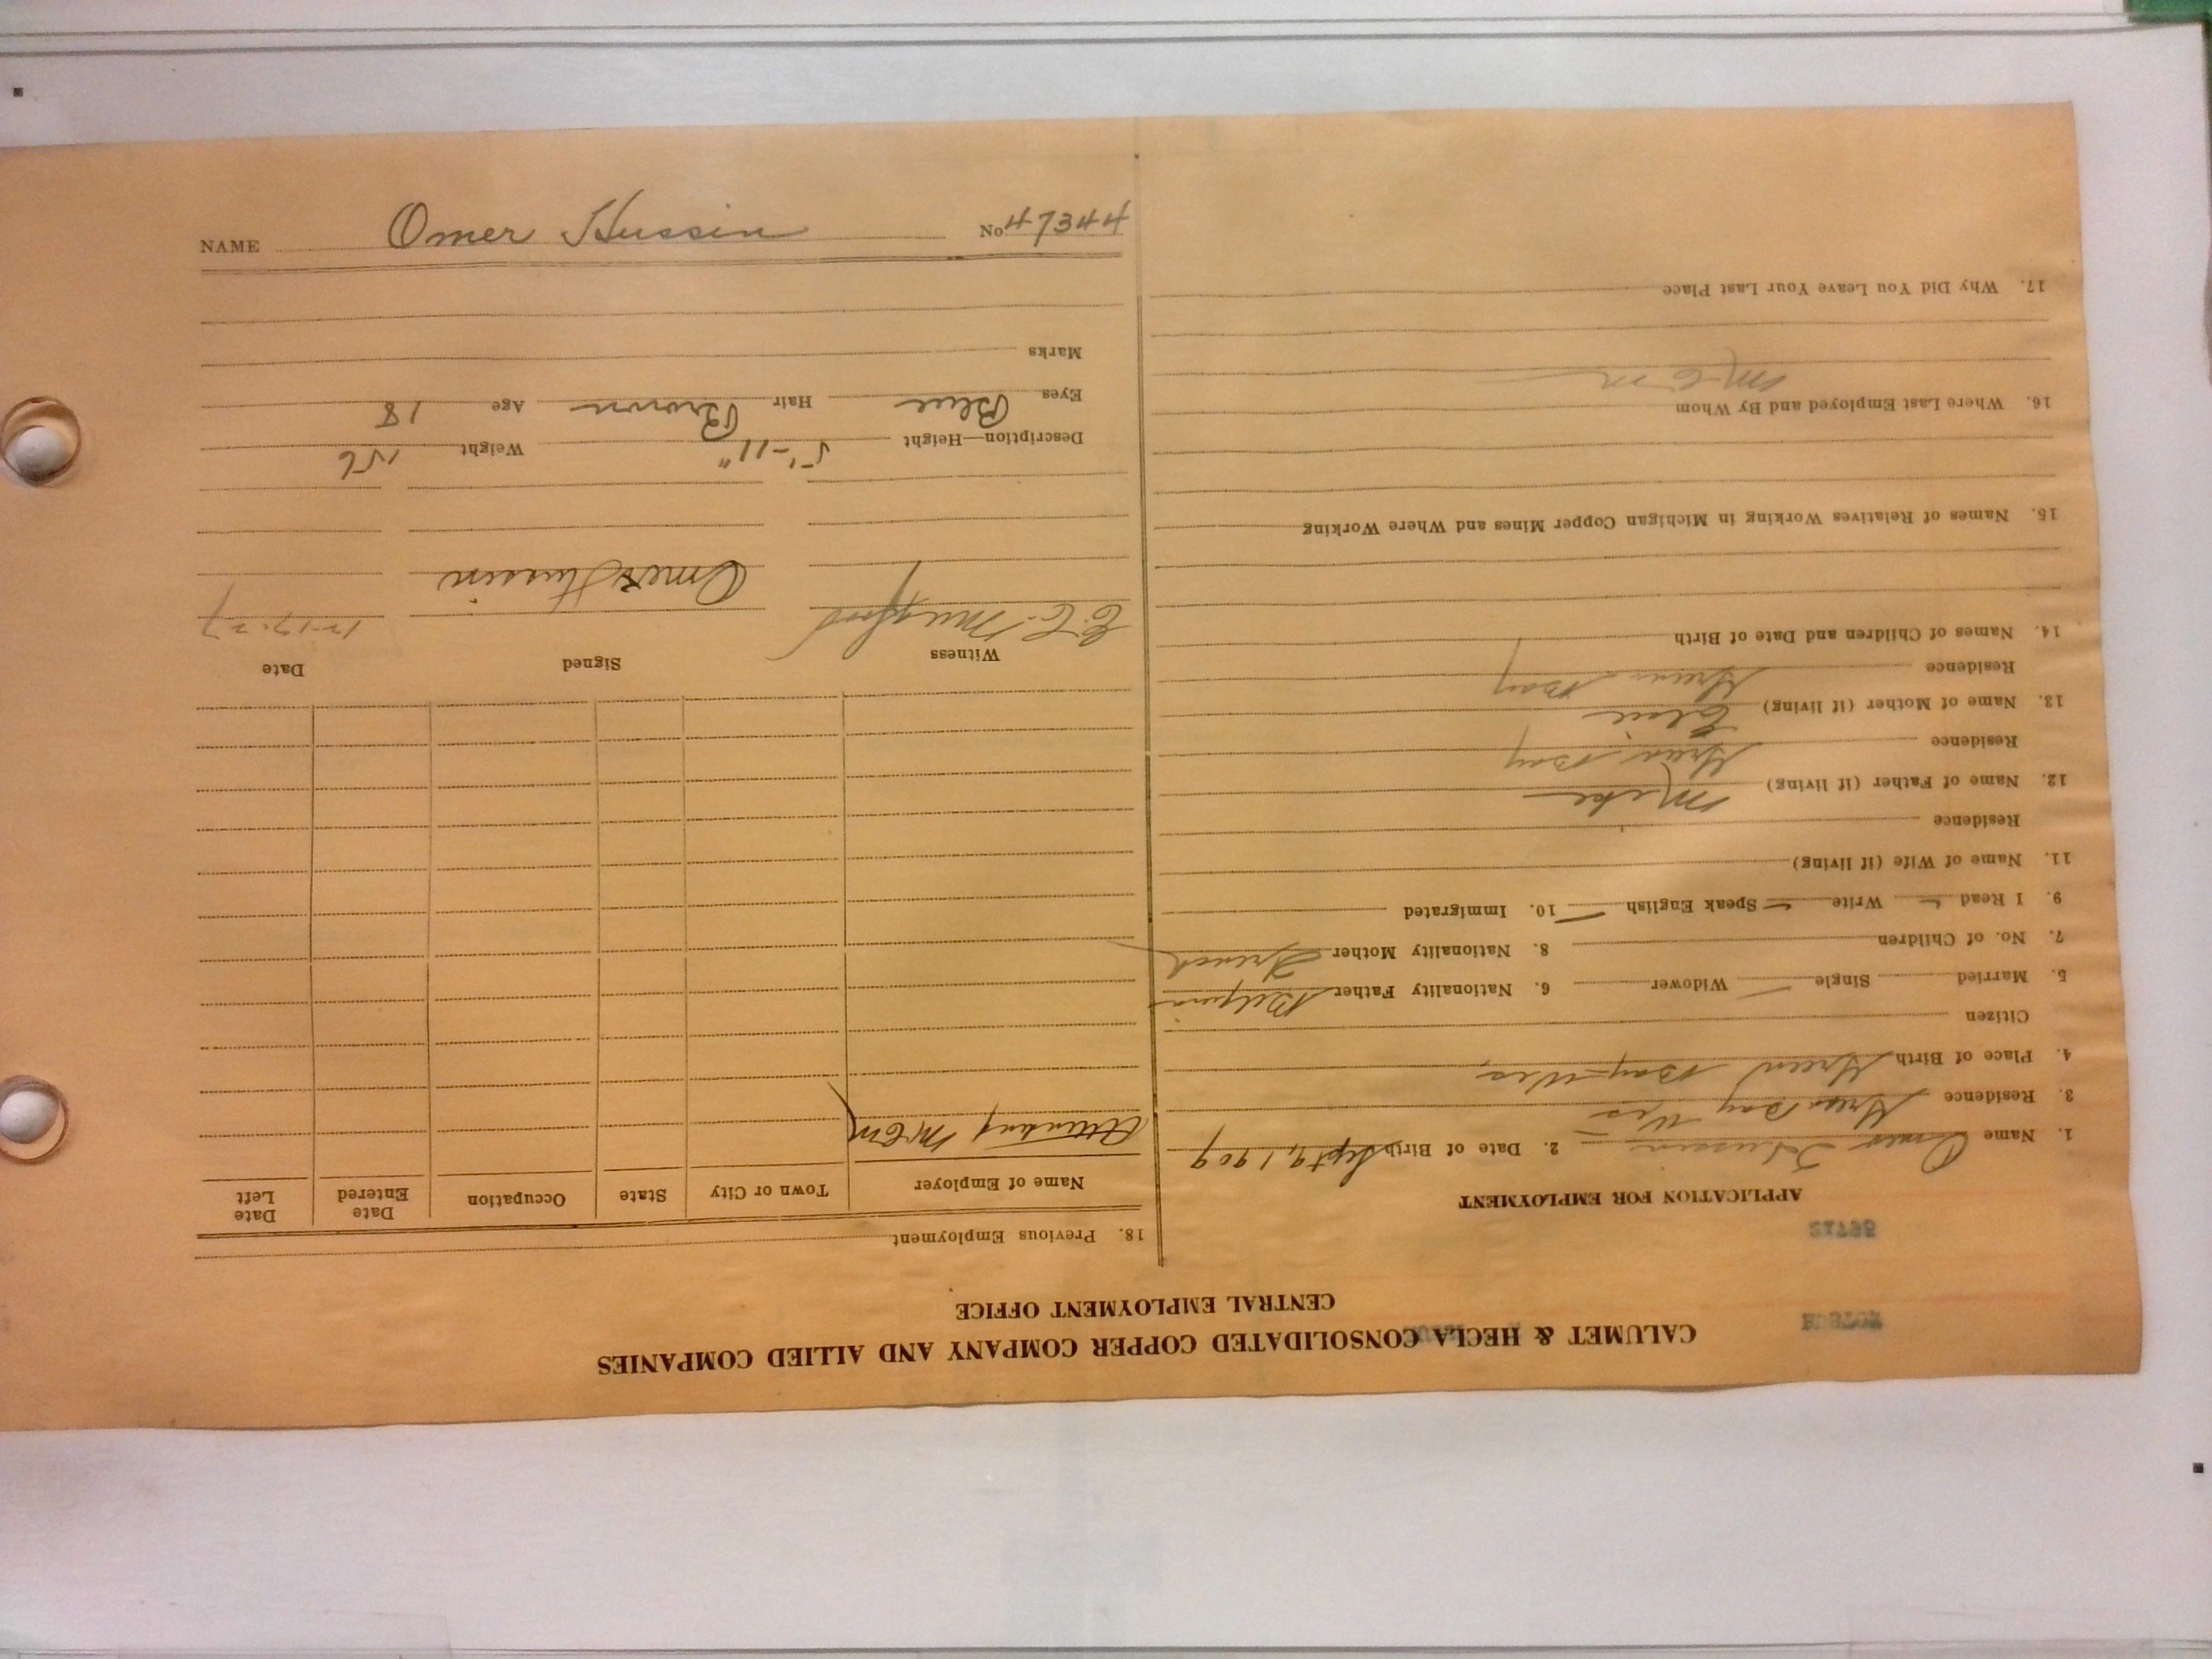 NAME Omer Hussin No 47344
CALUMET & HECLA CONSOLIDATED COPPER COMPANY AND ALLIED COMPANIES
CENTRAL EMPLOYMENT OFFICE
APPLICATION FOR EMPLOYMENT
1. Name Omer Hussin 2. Date of Birth Sept 9, 1909
3. Residence Green Bay Wis
4. Place of Birth Green Bay Wis
Citizen
5. Married Single Widower 6. Nationality Father
7. No. of Children 8. Nationality Mother French
9. I Read Write Speak English 10. Immigrated
11. Name of Wife (if living)
Residence
12. Name of Father (if living) Mike
Residence Green Bay
13. Name of Mother (if living)
Residence Green Bay
14. Names of Children and Date of Birth
15. Names of Relatives Working in Michigan Copper Mines and Where Working
16. Where Last Employed and By Whom
M C M
17. Why Did You Leave Your Last Place
18. Previous Employment
Name of Employer Town or City State Occupation Date Entered Date Left
Attending MCM
Witness Signed Date
Omer Hussin 12-17-27
Description—Height 5'-11" Weight 156
Eyes Blue Hair Brown Age 18
Marks